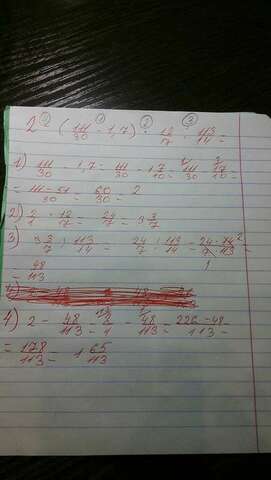 ④ ① ② ③
2 - (111/30 - 1,7) · 12/7 : 113/14 =
1) 111/30 - 1,7 = 111/30 - 17/10 = 111/30 - 17/10 =
= 111 - 51/30 = 60/30 = 2
2) 2/1 · 12/7 = 24/7 = 3 3/7
3) 3 3/7 : 113/14 = 24/7 : 113/14 = 24 · 14/7 · 113 =
= 48/113
4) 2 - 48/113 = 2/1 - 48/113 = 226 - 48/113 =
= 178/113 = 1 65/113